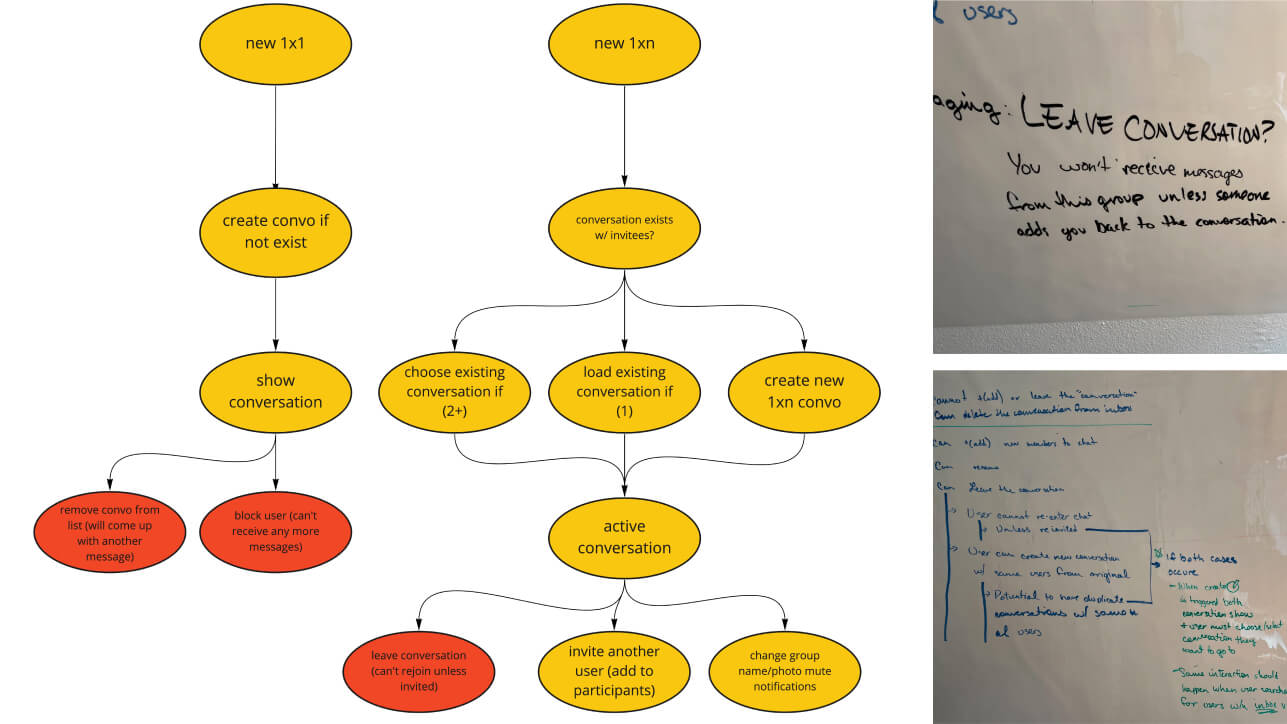 new 1x1
create convo if
not exist
show
conversation
remove convo from
list (will come up
with another
message)
block user (can't
receive any more
messages)
new 1xn
conversation exists
w/ invitees?
choose existing
conversation if
(2+)
load existing
conversation if
(1)
create new
1xn convo
active
conversation
leave conversation
(can't rejoin unless
invited)
invite another
user (add to
participants)
change group
name/photo mute
notifications
users
aging: LEAVE CONVERSATION?
You won't receive messages
from this group unless someone
adds you back to the conversation.
+(add) or leave the "conversation"
Can delete the conversation from inbox
Can +(add) new members to chat
Can
Can Leave the conversation
User cannot re-enter chat
Unless reinvited
User can create new conversation
w/ same users from original
Potential to have duplicate
conversations w/
users
if both cases
occure
- When create
is triggered both
conversation show
+ user must choose what
conversation they
want to go to
- Same interaction should
happen when user searches
for users w/in inbox